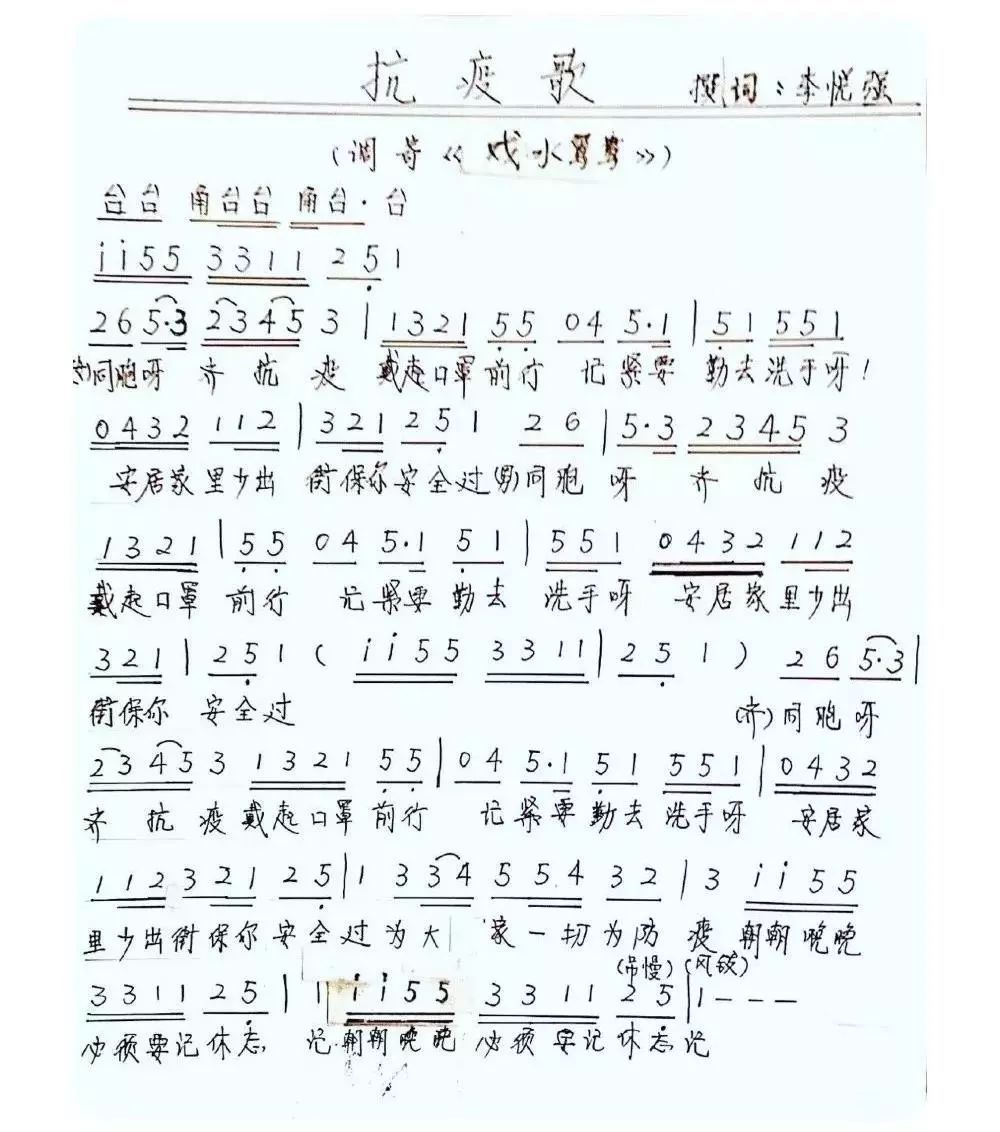 抗疫歌 撰词：李悦强
(调寄《戏水鸳鸯》)
台台 甬台台 甬台·台
i i 5 5 3 3 1 1 2 5 1
2 6 5·3 2 3 4 5 3 | 1 3 2 1 5 5 0 4 5·1 | 5 1 5 5 1
同胞呀 齐抗疫 戴起口罩前行 记紧要 勤去洗手呀！
0 4 3 2 1 1 2 | 3 2 1 2 5 1 2 6 | 5·3 2 3 4 5 3
安居家里少出街保你安全过(男)同胞呀 齐抗疫
1 3 2 1 | 5 5 0 4 5·1 5 1 | 5 5 1 0 4 3 2 1 1 2
戴起口罩 前行 记紧要 勤去 洗手呀 安居家里少出
3 2 1 | 2 5 1 ( i i 5 5 3 3 1 1 | 2 5 1 ) 2 6 5·3 |
街保你 安全过 (齐)同胞呀
2 3 4 5 3 1 3 2 1 5 5 | 0 4 5·1 5 1 5 5 1 | 0 4 3 2
齐抗疫戴起口罩前行 记紧要勤去洗手呀 安居家
1 1 2 3 2 1 2 5 | 1 3 3 4 5 5 4 3 2 | 3 i i 5 5
里少出街保你安全过为大家一切为防疫朝朝晚晚
(吊慢) (风铰)
3 3 1 1 2 5 | 1 i i 5 5 3 3 1 1 2 5 | 1 - - -
必须要记休忘 记朝朝晚晚 必须要记休忘记